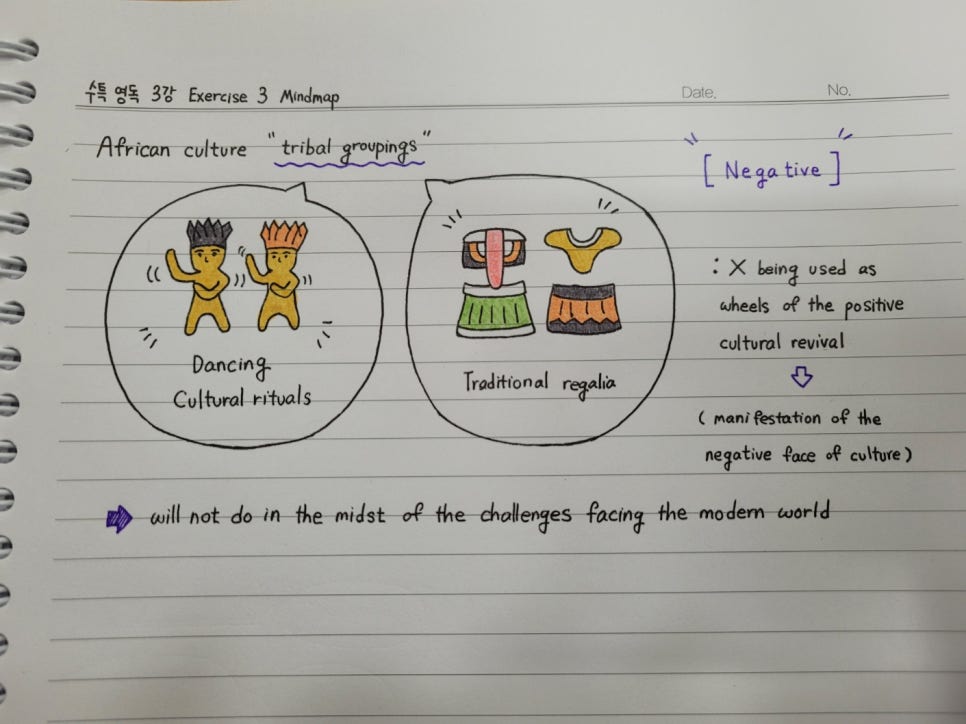 수특 영독 3강 Exercise 3 Mindmap
Date.
No.
African culture "tribal groupings"
[Negative]
Dancing
Cultural rituals
Traditional regalia
: X being used as
wheels of the positive
cultural revival
(manifestation of the
negative face of culture)
will not do in the midst of the challenges facing the modern world